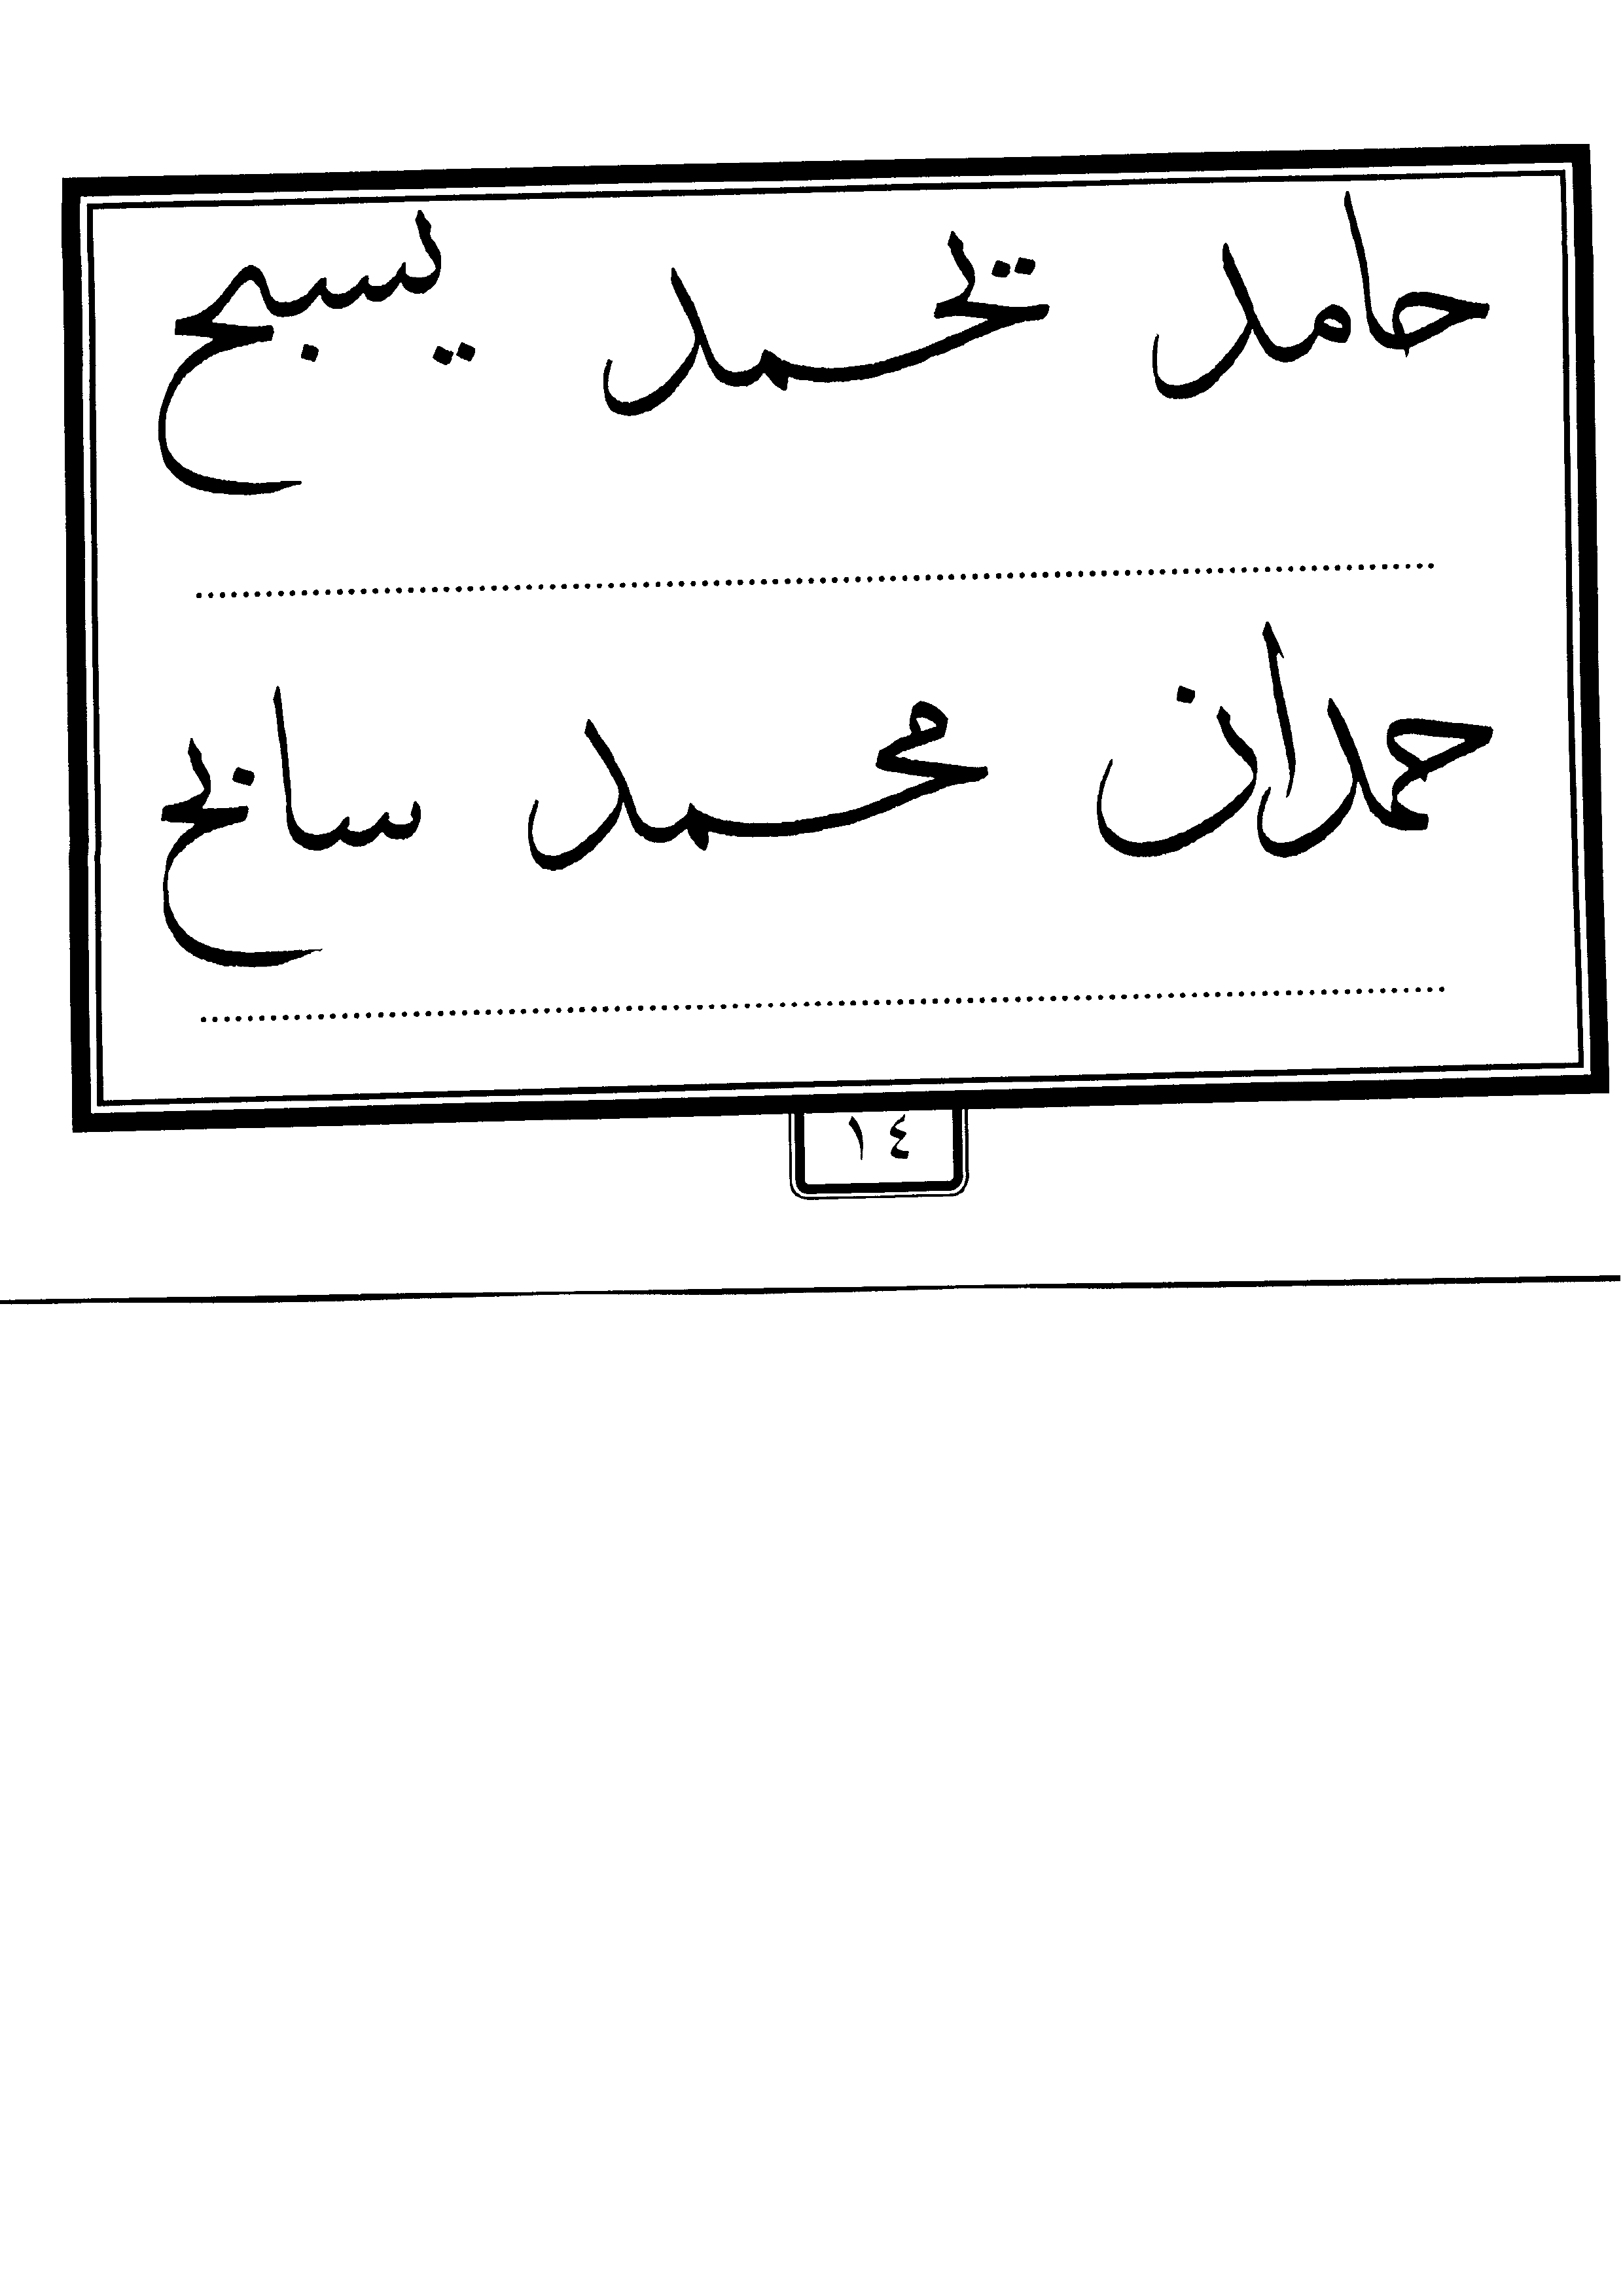 حامد تحمد يسبح
حمدان محمد سانح
١٤